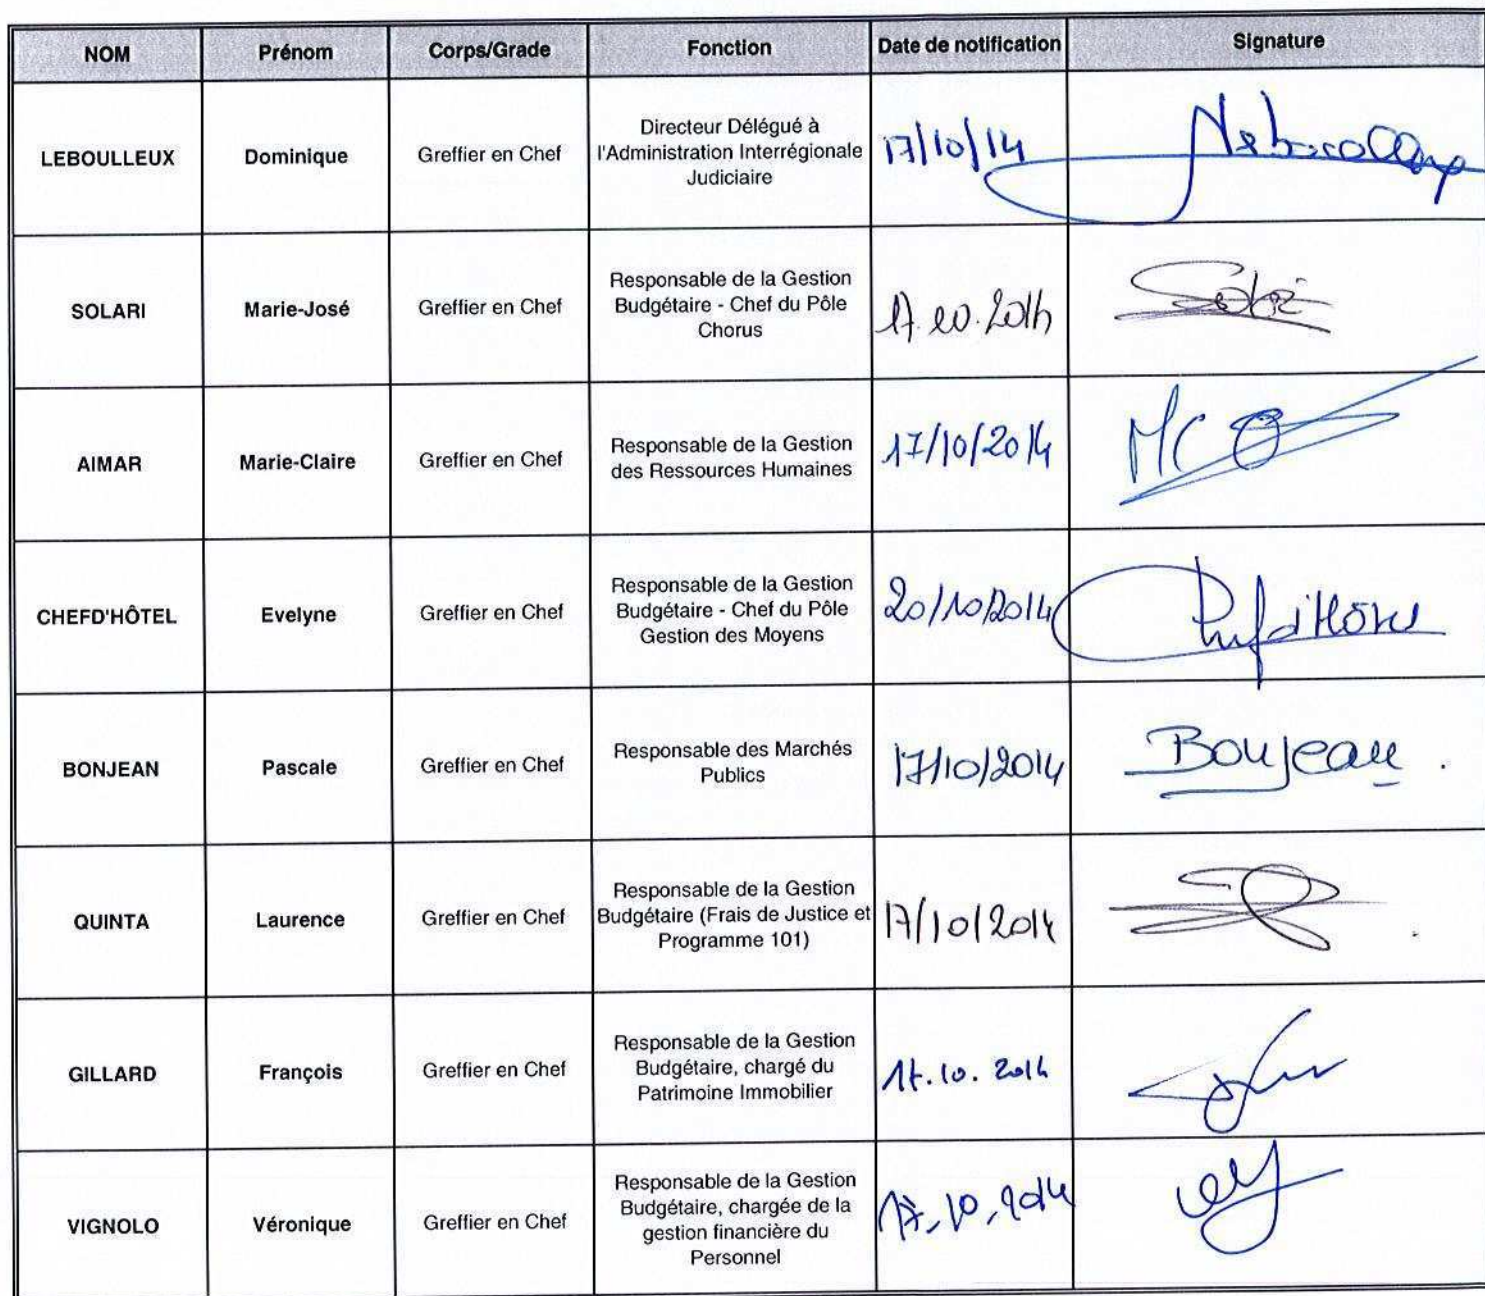 NOM Prénom Corps/Grade Fonction Date de notification Signature
LEBOULLEUX Dominique Greffier en Chef
Directeur Délégué à
l'Administration Interrégionale
Judiciaire
17/10/14
SOLARI Marie-José Greffier en Chef
Responsable de la Gestion
Budgétaire - Chef du Pôle
Chorus
17.10.2014
AIMAR Marie-Claire Greffier en Chef
Responsable de la Gestion
des Ressources Humaines
17/10/2014
CHEFD'HÔTEL Evelyne Greffier en Chef
Responsable de la Gestion
Budgétaire - Chef du Pôle
Gestion des Moyens
20/10/2014
Chefd'Hôtel
BONJEAN Pascale Greffier en Chef
Responsable des Marchés
Publics
17/10/2014
Bonjean
QUINTA Laurence Greffier en Chef
Responsable de la Gestion
Budgétaire (Frais de Justice et
Programme 101)
17/10/2014
GILLARD François Greffier en Chef
Responsable de la Gestion
Budgétaire, chargé du
Patrimoine Immobilier
17.10.2014
VIGNOLO Véronique Greffier en Chef
Responsable de la Gestion
Budgétaire, chargée de la
gestion financière du
Personnel
17.10.2014